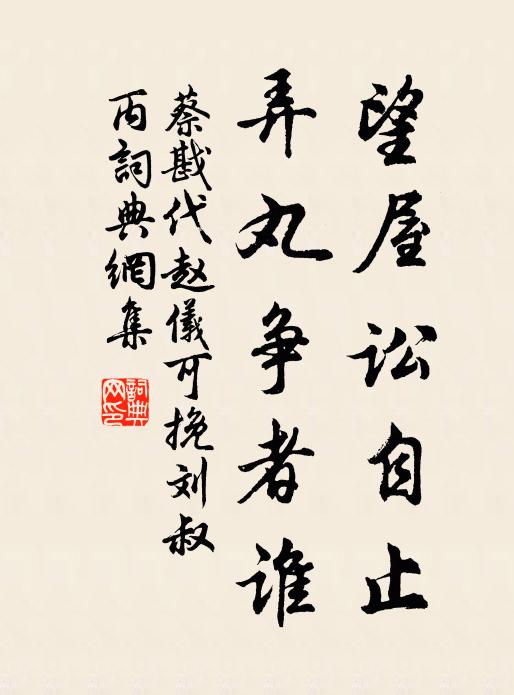 望屋讼自止
弄丸争者谁
蔡戡代赵仪可挽刘叔
丙词典网集
词典网印